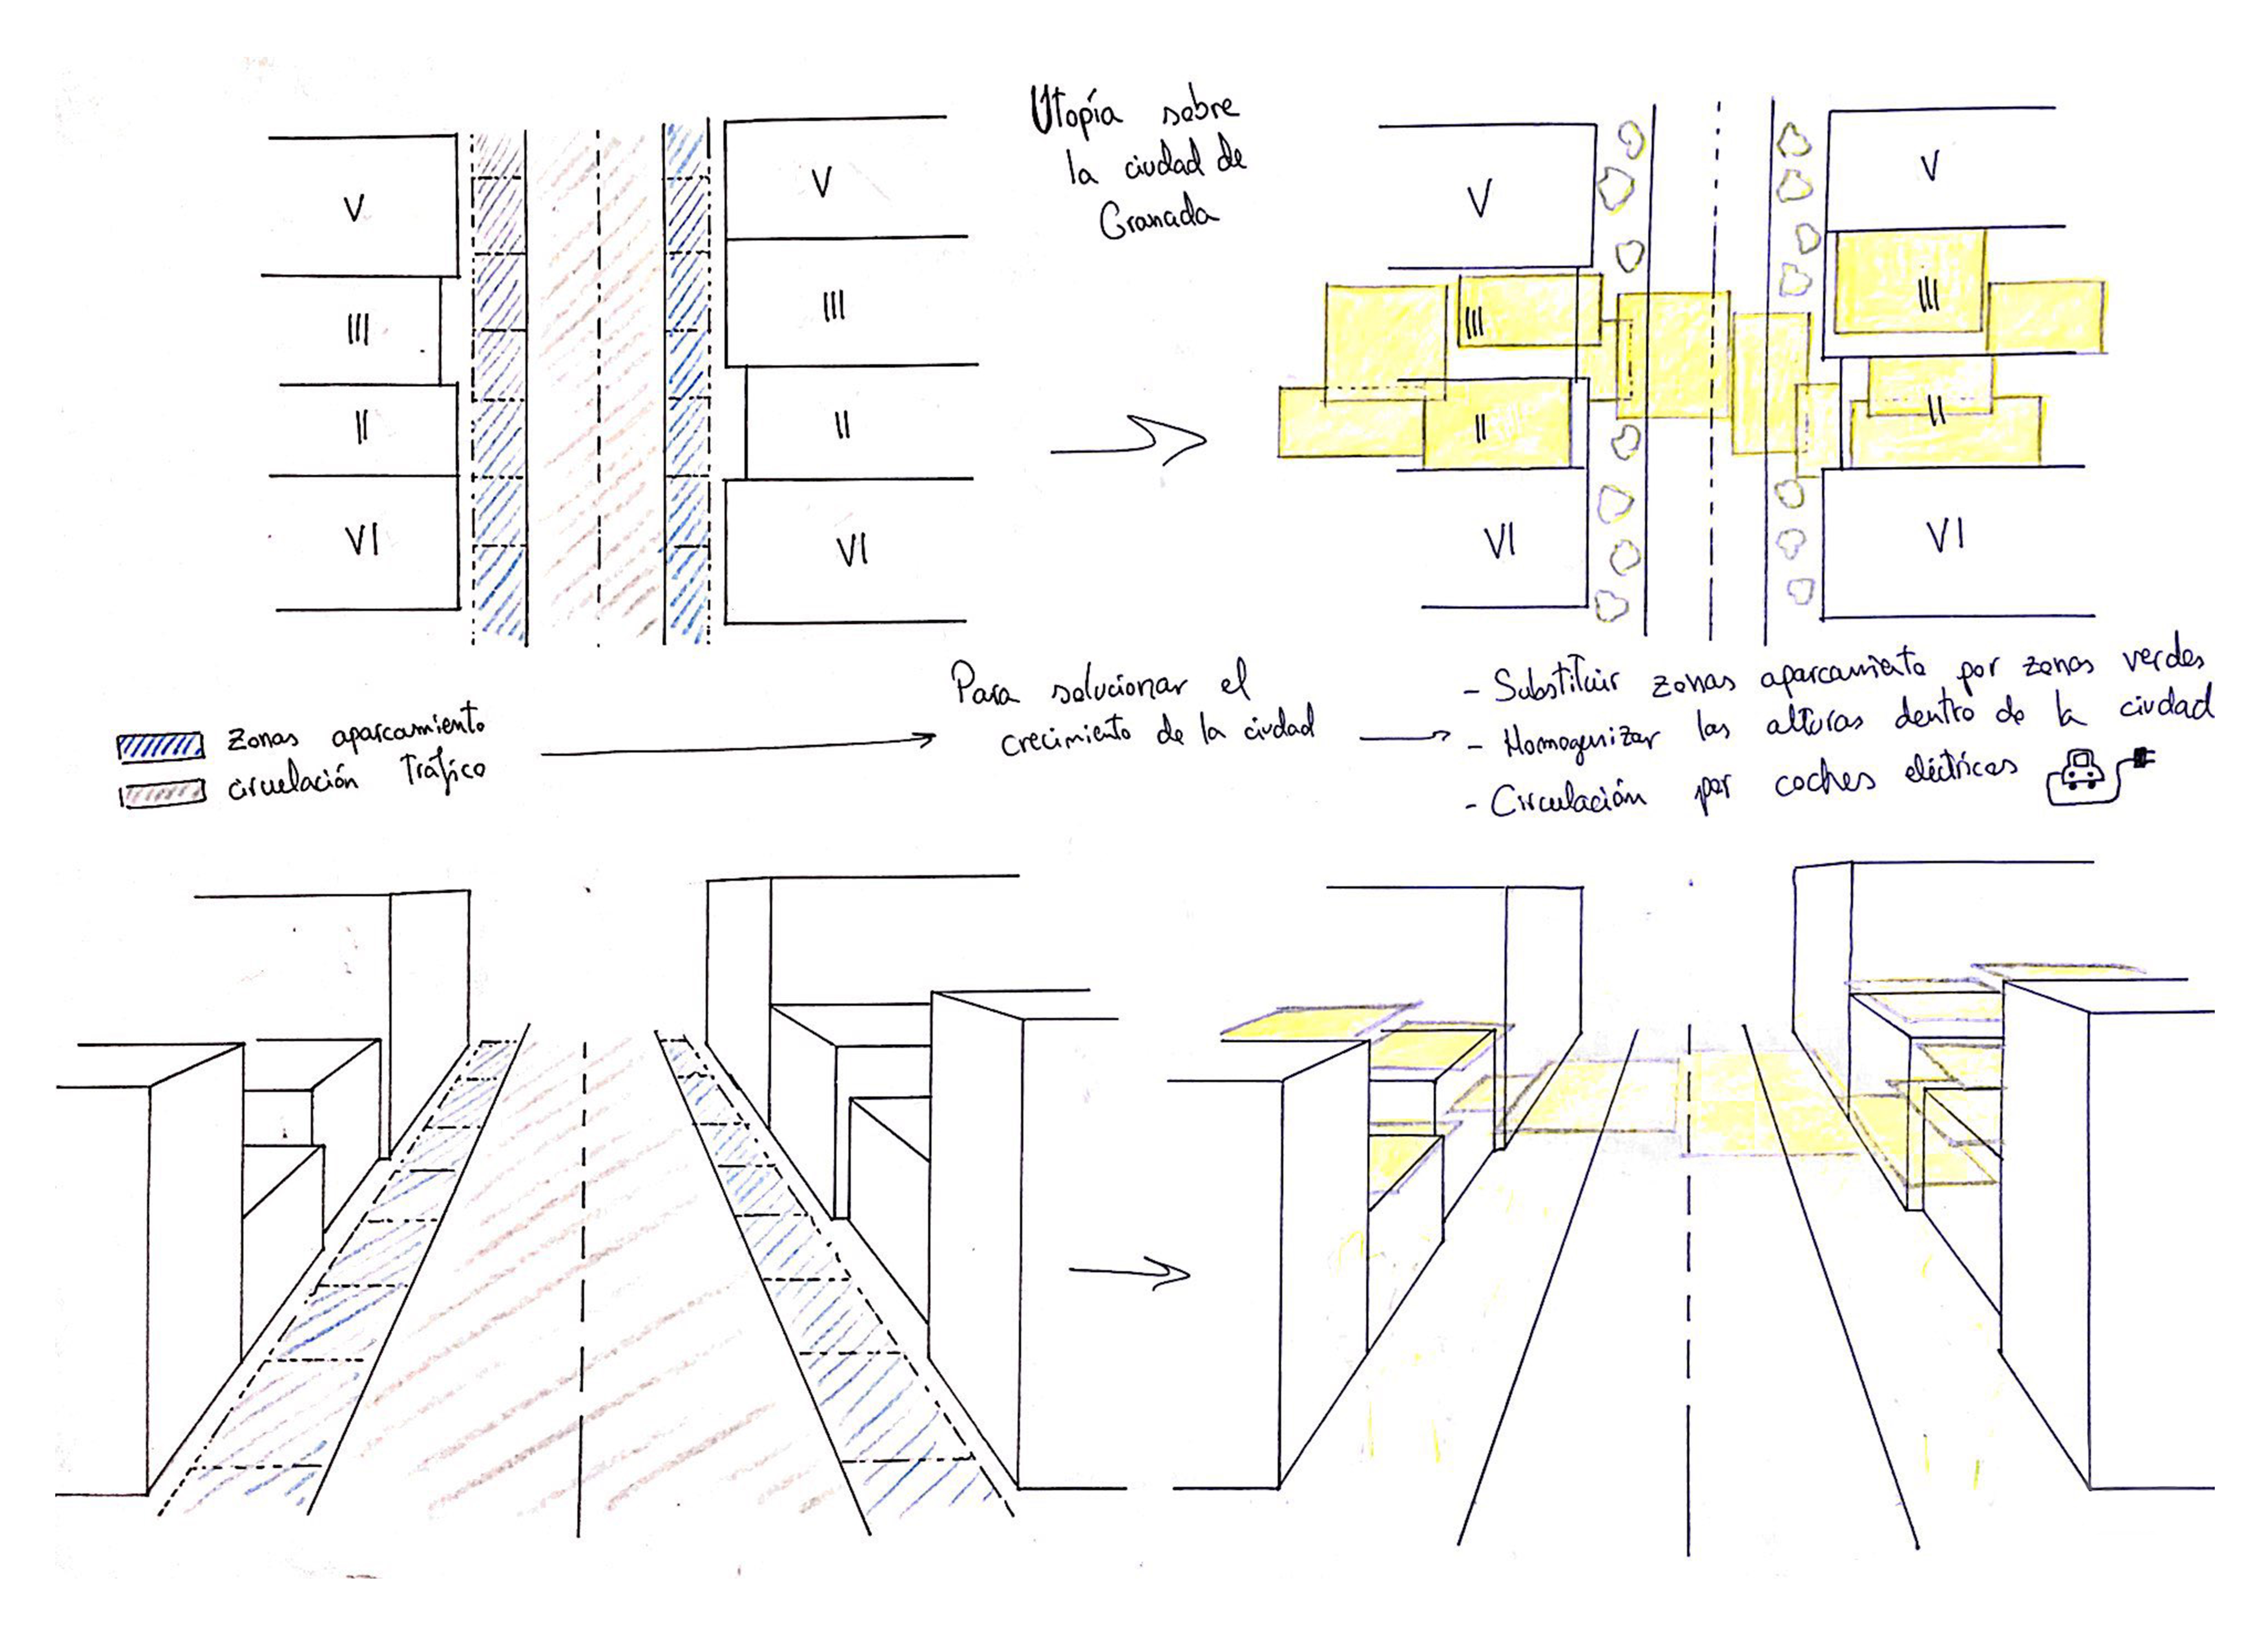 Utopía sobre
la ciudad de
Granada
V
III
II
VI
V
III
II
VI
V
III
II
VI
V
III
II
VI
zonas aparcamiento
circulación tráfico
Para solucionar el
crecimiento de la ciudad
- Substituir zonas aparcamiento por zonas verdes
- Homogenizar las alturas dentro de la ciudad
- Circulación por coches eléctricos